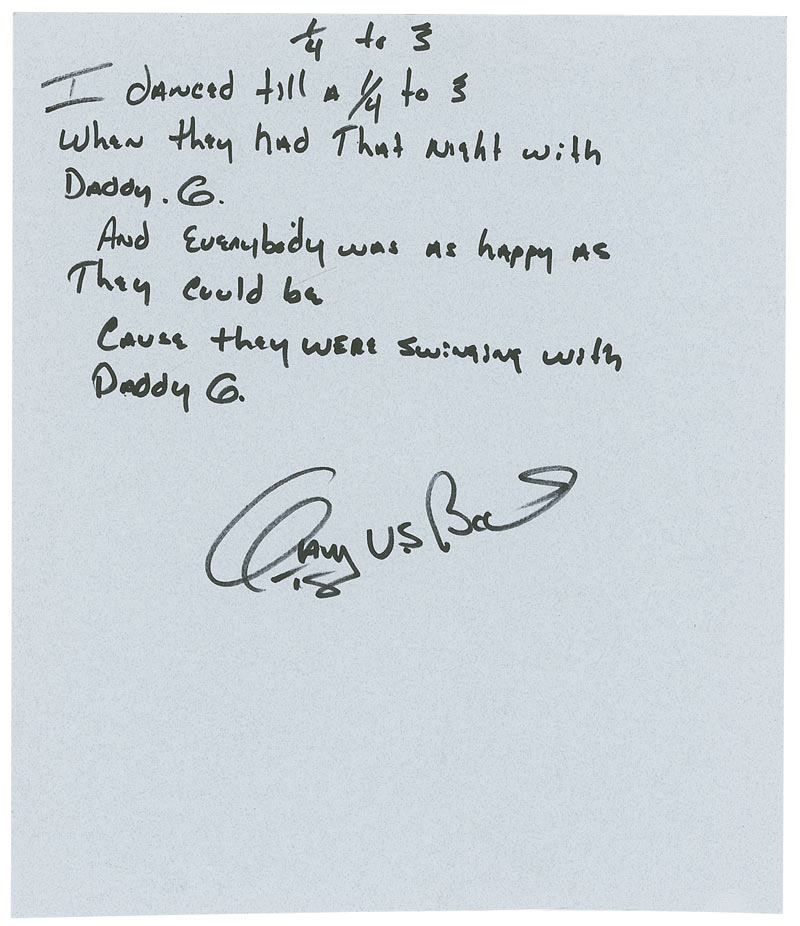 1/4 to 3
I danced till a 1/4 to 3
When they had That night with
Daddy. G.
And Everybody was as happy as
They could be
Cause they were swinging with
Daddy G.
Gary U.S. Bonds